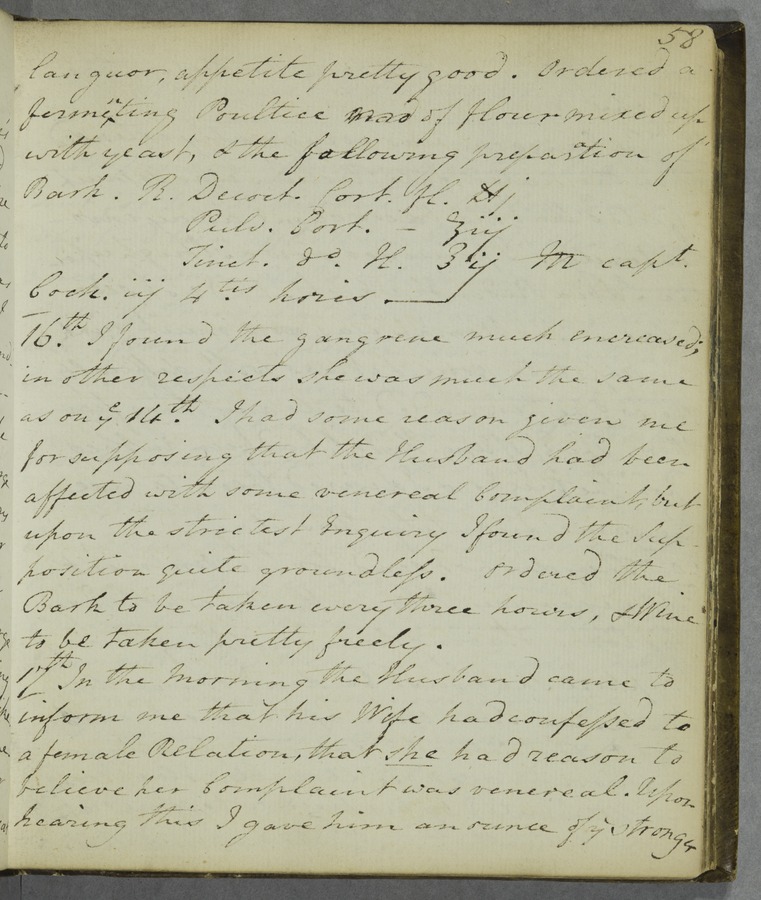 58
languor, appetite pretty good. Ordered a
fermenting Poultice mad of flour mixed up
with yeast, & the following preparation of
Bark. R. Decoct. Cort. fl. ℔j
Pulv. Cort. – ʒiij
Tinct. do. H. ʒij M capt.
Coch. iij 4tis horis.
16th. I found the gangrene much encreased;
in other respects she was much the same
as on ye 14th. I had some reason given me
for supposing that the Husband had been
affected with some venereal Complaint, but
upon the strictest Enquiry I found the Sup-
position quite groundless. Ordered the
Bark to be taken every three hours, & Wine
to be taken pretty freely.
17th In the Morning the Husband came to
inform me that his Wife had confessed to
a female Relation, that she had reason to
believe her Complaint was venereal. Upon
hearing this I gave him an ounce of ye stronger